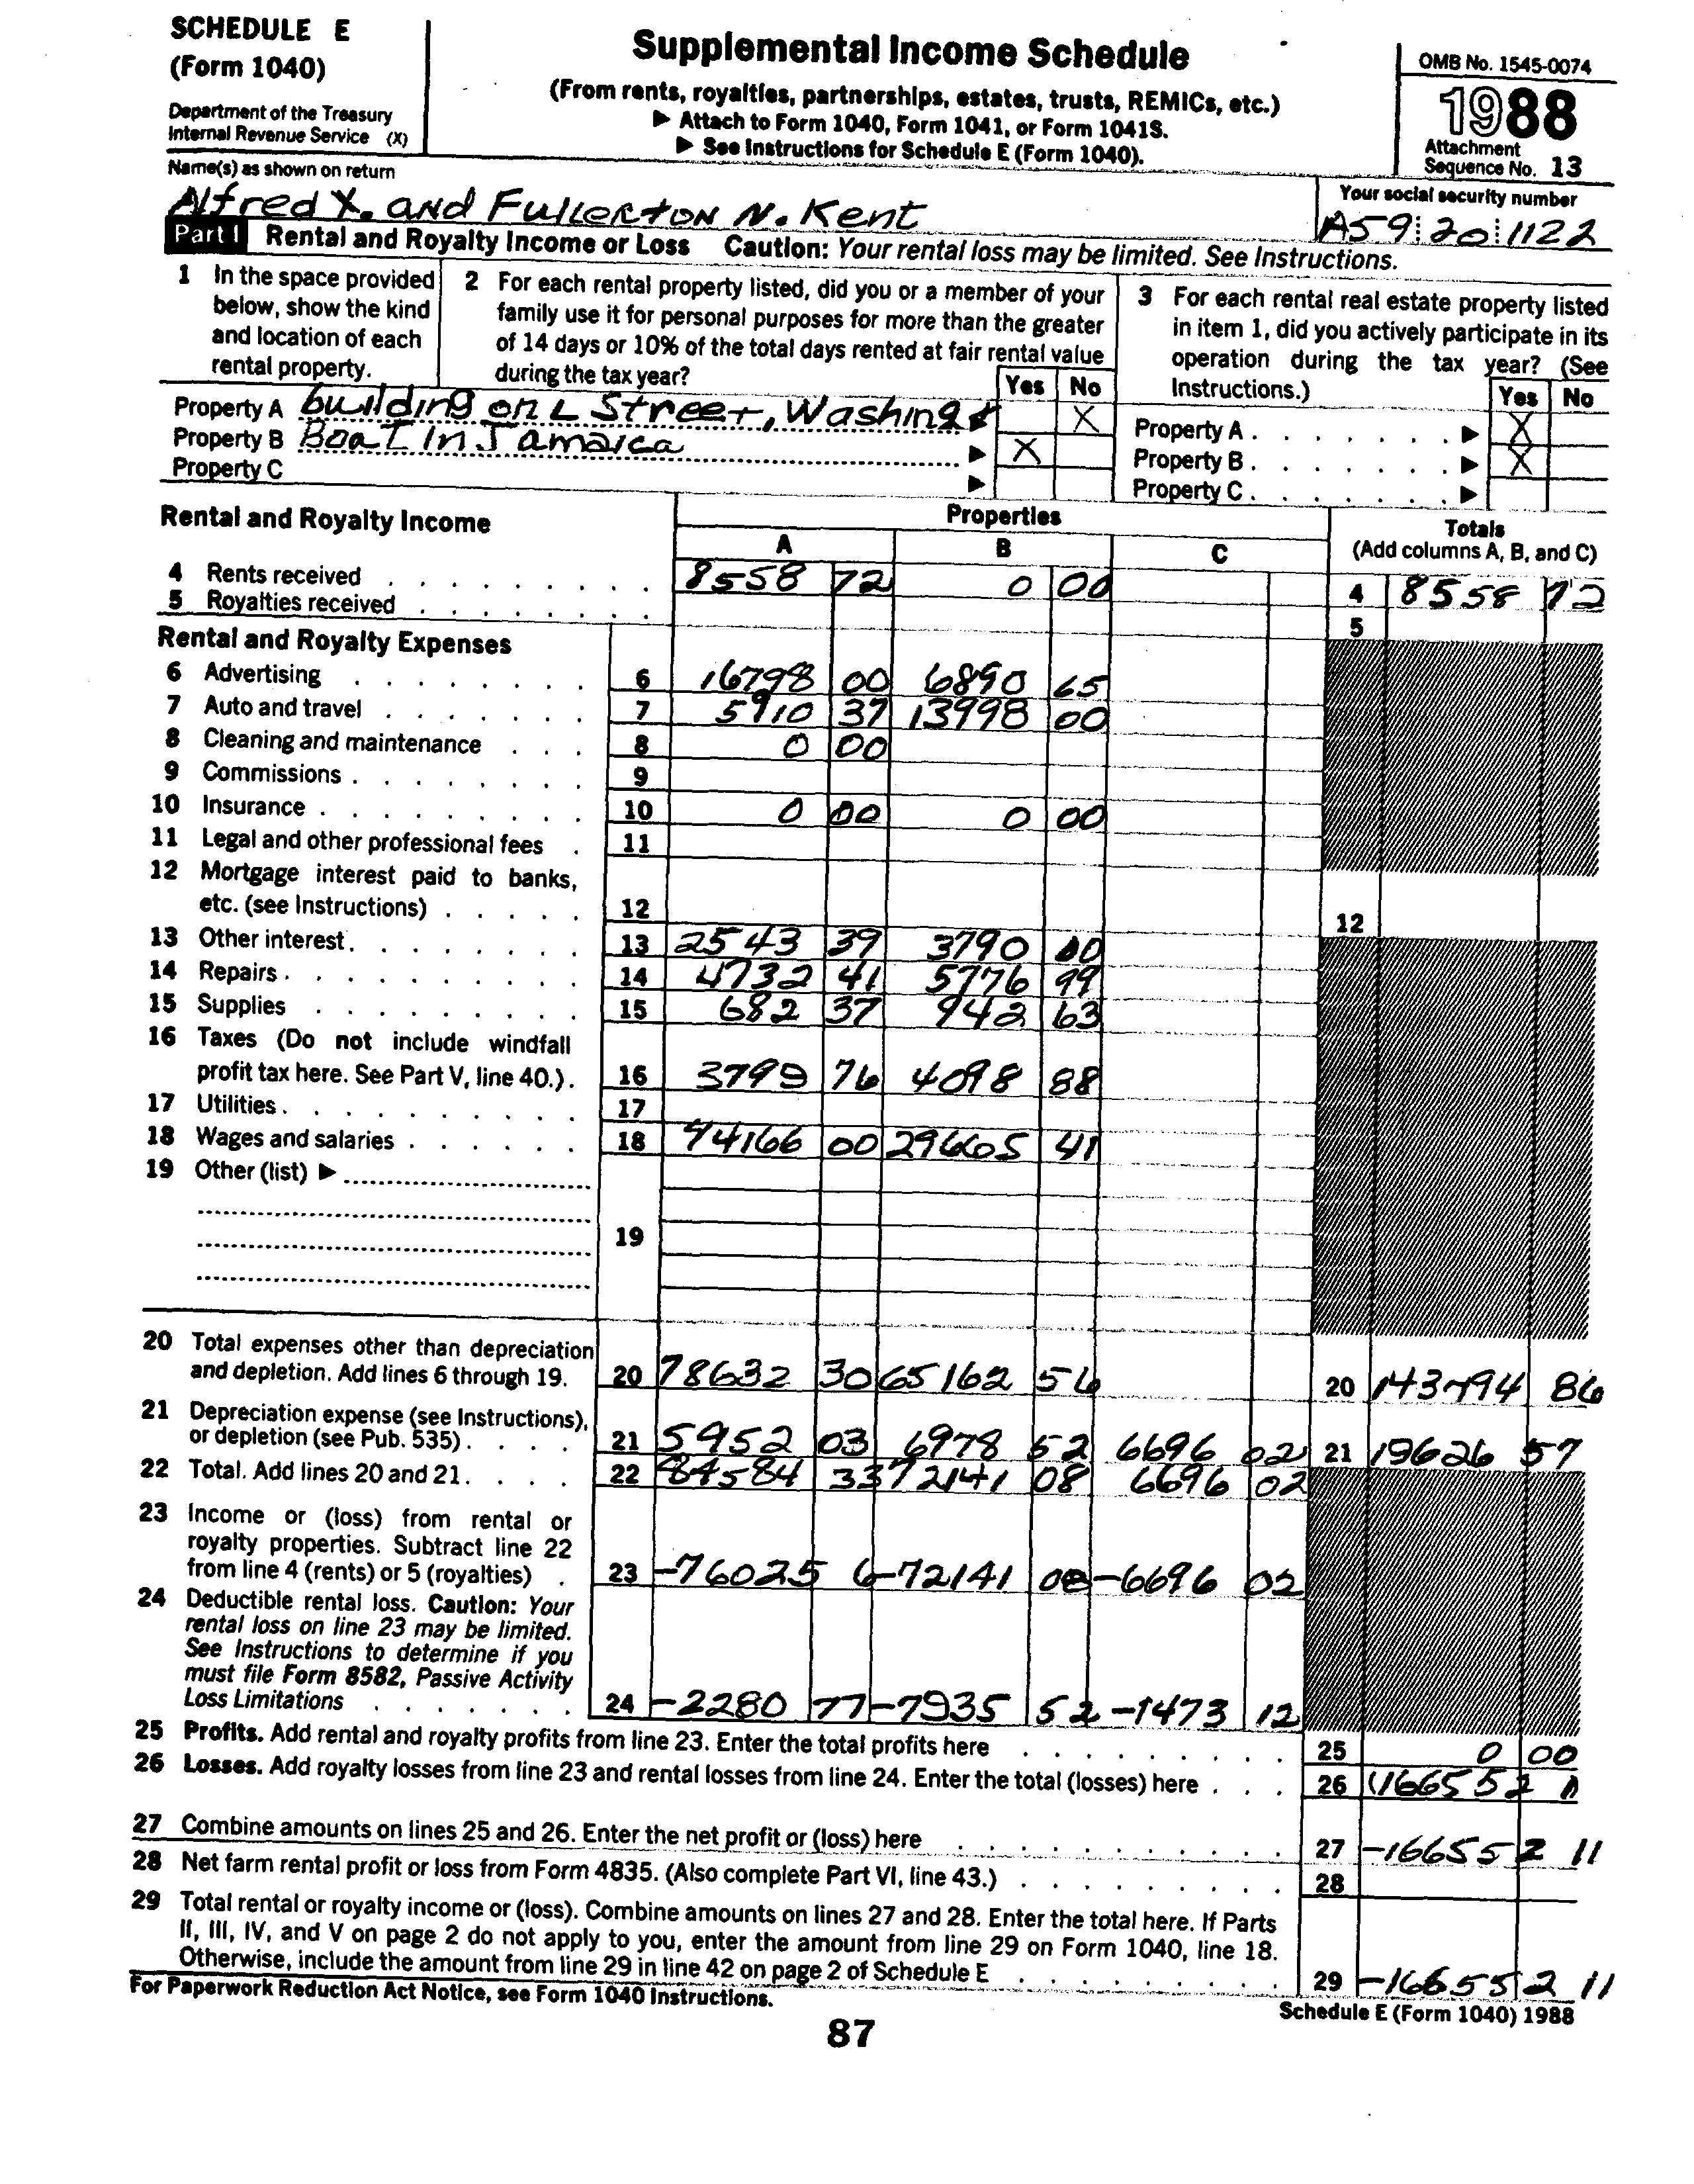 SCHEDULE E
(Form 1040)
Department of the Treasury
Internal Revenue Service (X)
Supplemental Income Schedule
(From rents, royalties, partnerships, estates, trusts, REMICs, etc.)
▶ Attach to Form 1040, Form 1041, or Form 1041S.
▶ See Instructions for Schedule E (Form 1040).
OMB No. 1545-0074
1988
Attachment
Sequence No. 13
Name(s) as shown on return
Alfred X. and Fullerton N. Kent
Your social security number
A59 20 1122
Part I Rental and Royalty Income or Loss Caution: Your rental loss may be limited. See Instructions.
1 In the space provided
below, show the kind
and location of each
rental property.
2 For each rental property listed, did you or a member of your
family use it for personal purposes for more than the greater
of 14 days or 10% of the total days rented at fair rental value
during the tax year?
Yes No
3 For each rental real estate property listed
in item 1, did you actively participate in its
operation during the tax year? (See
Instructions.)
Yes No
Property A building on L Street, Washing X
Property B Boat In Jamaica ▶ X
Property C ▶
Property A . . . . . . . ▶ X
Property B . . . . . . . ▶ X
Property C . . . . . . . ▶
Rental and Royalty Income
Properties
A B C
Totals
(Add columns A, B, and C)
4 Rents received 8558 72 0 00 4 8558 72
5 Royalties received 5
Rental and Royalty Expenses
6 Advertising 6 16798 00 6890 65
7 Auto and travel 7 5910 37 13998 00
8 Cleaning and maintenance 8 0 00
9 Commissions 9
10 Insurance 10 0 00 0 00
11 Legal and other professional fees 11
12 Mortgage interest paid to banks,
etc. (see Instructions) 12 12
13 Other interest 13 2543 39 3790 00
14 Repairs 14 4732 41 5776 99
15 Supplies 15 682 37 942 63
16 Taxes (Do not include windfall
profit tax here. See Part V, line 40.) 16 3799 76 4098 88
17 Utilities 17
18 Wages and salaries 18 44166 00 29665 41
19 Other (list) ▶
19
20 Total expenses other than depreciation
and depletion. Add lines 6 through 19. 20 78632 30 65162 56 20 143794 86
21 Depreciation expense (see Instructions),
or depletion (see Pub. 535) 21 5952 03 6978 52 6696 02 21 19626 57
22 Total. Add lines 20 and 21 22 84584 33 72141 08 6696 02
23 Income or (loss) from rental or
royalty properties. Subtract line 22
from line 4 (rents) or 5 (royalties) 23 -76025 6 -72141 08 -6696 02
24 Deductible rental loss. Caution: Your
rental loss on line 23 may be limited.
See Instructions to determine if you
must file Form 8582, Passive Activity
Loss Limitations 24 -2280 77 -7935 52 -1473 12
25 Profits. Add rental and royalty profits from line 23. Enter the total profits here 25 0 00
26 Losses. Add royalty losses from line 23 and rental losses from line 24. Enter the total (losses) here 26 (166552 11
27 Combine amounts on lines 25 and 26. Enter the net profit or (loss) here 27 -166552 11
28 Net farm rental profit or loss from Form 4835. (Also complete Part VI, line 43.) 28
29 Total rental or royalty income or (loss). Combine amounts on lines 27 and 28. Enter the total here. If Parts
II, III, IV, and V on page 2 do not apply to you, enter the amount from line 29 on Form 1040, line 18.
Otherwise, include the amount from line 29 in line 42 on page 2 of Schedule E 29 -166552 11
For Paperwork Reduction Act Notice, see Form 1040 Instructions.
Schedule E (Form 1040) 1988
87